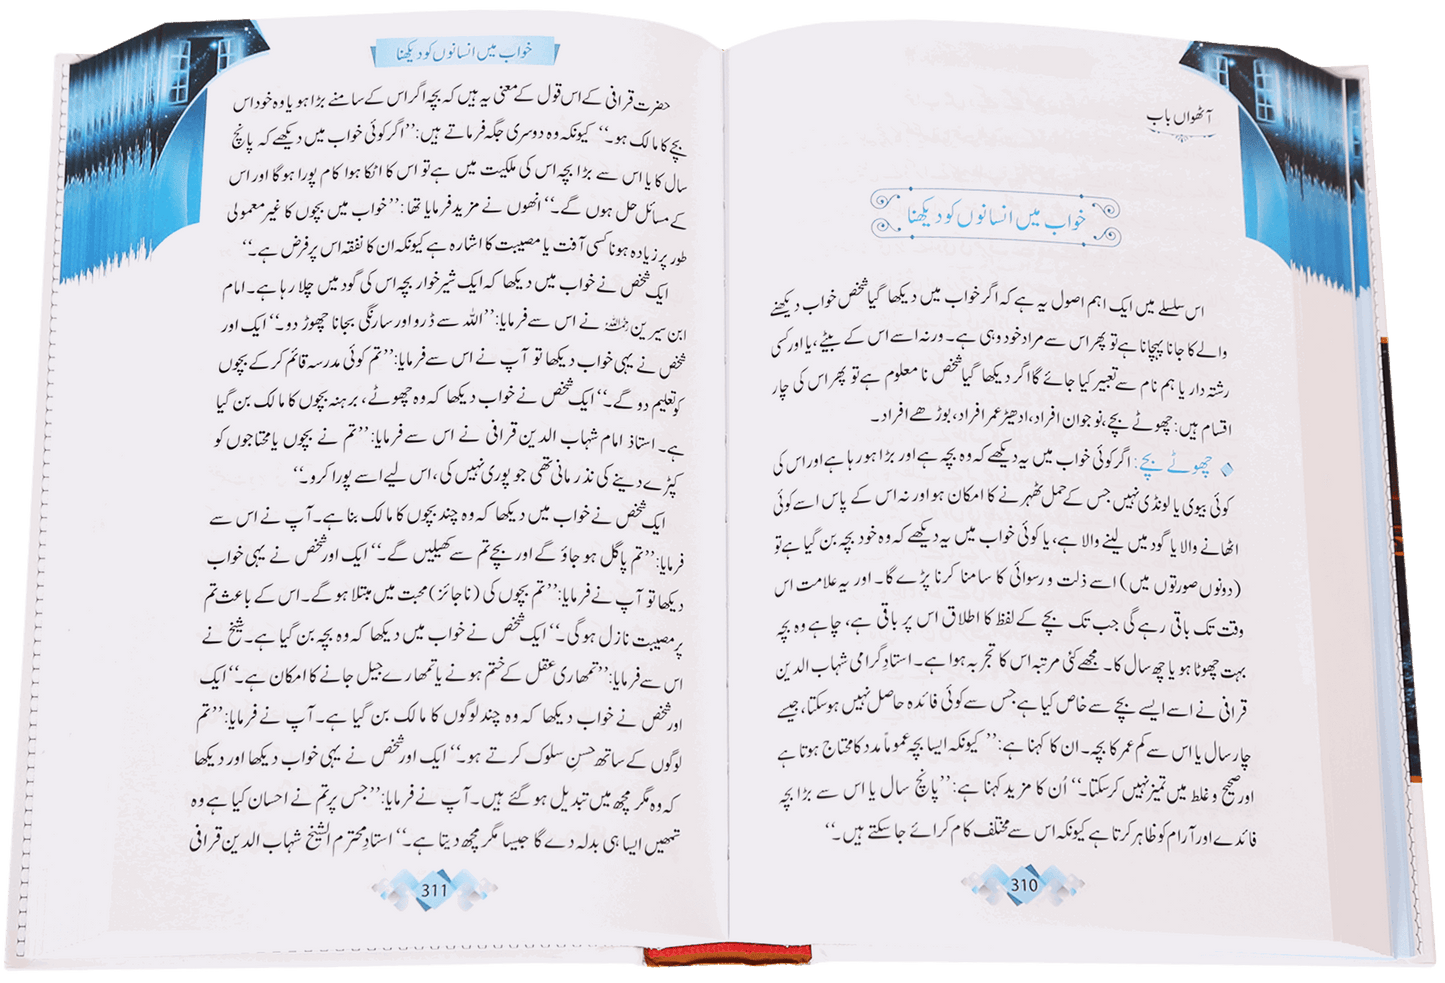 آٹھواں باب
خواب میں انسانوں کو دیکھنا
اس سلسلے میں ایک اہم اصول یہ ہے کہ اگر خواب میں دیکھا گیا شخص خواب دیکھنے
والے کا جانا پہچانا ہے تو پھر اس سے مراد خود وہی ہے۔ ورنہ اسے اس کے بیٹے، یا اور کسی
رشتہ دار یا ہم نام سے تعبیر کیا جائے گا اگر دیکھا گیا شخص نا معلوم ہے تو پھر اس کی چار
اقسام ہیں: چھوٹے بچے، نوجوان افراد، ادھیڑ عمر افراد، بوڑھے افراد۔
چھوٹے بچے: اگر کوئی خواب میں یہ دیکھے کہ وہ بچہ ہے اور بڑا ہو رہا ہے اور اس کی
کوئی بیوی یا لونڈی نہیں جس کے حمل ٹھہرنے کا امکان ہو اور نہ اس کے پاس اسے کوئی
اٹھانے والا یا گود میں لینے والا ہے، یا کوئی خواب میں یہ دیکھے کہ وہ خود بچہ بن گیا ہے تو
(دونوں صورتوں میں) اسے ذلت و رسوائی کا سامنا کرنا پڑے گا۔ اور یہ علامت اس
وقت تک باقی رہے گی جب تک بچے کے لفظ کا اطلاق اس پر باقی ہے، چاہے وہ بچہ
بہت چھوٹا ہو یا چھ سال کا۔ مجھے کئی مرتبہ اس کا تجربہ ہوا ہے۔ استادِ گرامی شہاب الدین
قرافی نے اسے ایسے بچے سے خاص کیا ہے جس سے کوئی فائدہ حاصل نہیں ہوسکتا، جیسے
چار سال یا اس سے کم عمر کا بچہ۔ ان کا کہنا ہے: ’’کیونکہ ایسا بچہ عموماً مدد کا محتاج ہوتا ہے
اور صحیح و غلط میں تمیز نہیں کرسکتا۔‘‘ اُن کا مزید کہنا ہے: ’’پانچ سال یا اس سے بڑا بچہ
فائدے اور آرام کو ظاہر کرتا ہے کیونکہ اس سے مختلف کام کرائے جاسکتے ہیں۔‘‘
310
خواب میں انسانوں کو دیکھنا
حضرت قرافی کے اس قول کے معنی یہ ہیں کہ بچہ اگر اس کے سامنے بڑا ہو یا وہ خود اس
بچے کا مالک ہو۔‘‘ کیونکہ وہ دوسری جگہ فرماتے ہیں: ’’اگر کوئی خواب میں دیکھے کہ پانچ
سال کا یا اس سے بڑا بچہ اس کی ملکیت میں ہے تو اس کا اٹکا ہوا کام پورا ہوگا اور اس
کے مسائل حل ہوں گے۔‘‘ انھوں نے مزید فرمایا تھا: ’’خواب میں بچوں کا غیر معمولی
طور پر زیادہ ہونا کسی آفت یا مصیبت کا اشارہ ہے کیونکہ ان کا نفقہ اس پر فرض ہے۔‘‘
ایک شخص نے خواب میں دیکھا کہ ایک شیر خوار بچہ اس کی گود میں چلا رہا ہے۔ امام
ابن سیرین رحمہ اللہ نے اس سے فرمایا: ’’اللہ سے ڈرو اور سارنگی بجانا چھوڑ دو۔‘‘ ایک اور
شخص نے یہی خواب دیکھا تو آپ نے اس سے فرمایا: ’’تم کوئی مدرسہ قائم کرکے بچوں
کو تعلیم دو گے۔‘‘ ایک شخص نے خواب دیکھا کہ وہ چھوٹے، برہنہ بچوں کا مالک بن گیا
ہے۔ استاذ امام شہاب الدین قرافی نے اس سے فرمایا: ’’تم نے بچوں یا محتاجوں کو
کپڑے دینے کی نذر مانی تھی جو پوری نہیں کی، اس لیے اسے پورا کرو۔‘‘
ایک شخص نے خواب میں دیکھا کہ وہ چند بچوں کا مالک بنا ہے۔ آپ نے اس سے
فرمایا: ’’تم پاگل ہو جاؤ گے اور بچے تم سے کھیلیں گے۔‘‘ ایک اور شخص نے یہی خواب
دیکھا تو آپ نے فرمایا: ’’تم بچوں کی (ناجائز) محبت میں مبتلا ہو گے۔ اس کے باعث تم
پر مصیبت نازل ہوگی۔‘‘ ایک شخص نے خواب میں دیکھا کہ وہ بچہ بن گیا ہے۔ شیخ نے
اس سے فرمایا: ’’تمھاری عقل کے ختم ہونے یا تمھارے جیل جانے کا امکان ہے۔‘‘ ایک
اور شخص نے خواب دیکھا کہ وہ چند لوگوں کا مالک بن گیا ہے۔ آپ نے فرمایا: ’’تم
لوگوں کے ساتھ حسنِ سلوک کرتے ہو۔‘‘ ایک اور شخص نے یہی خواب دیکھا اور دیکھا
کہ وہ مگر مچھ میں تبدیل ہو گئے ہیں۔ آپ نے فرمایا: ’’جس پر تم نے احسان کیا ہے وہ
تمھیں ایسا ہی بدلہ دے گا جیسا مگر مچھ دیتا ہے۔‘‘ استادِ محترم الشیخ شہاب الدین قرافی
311